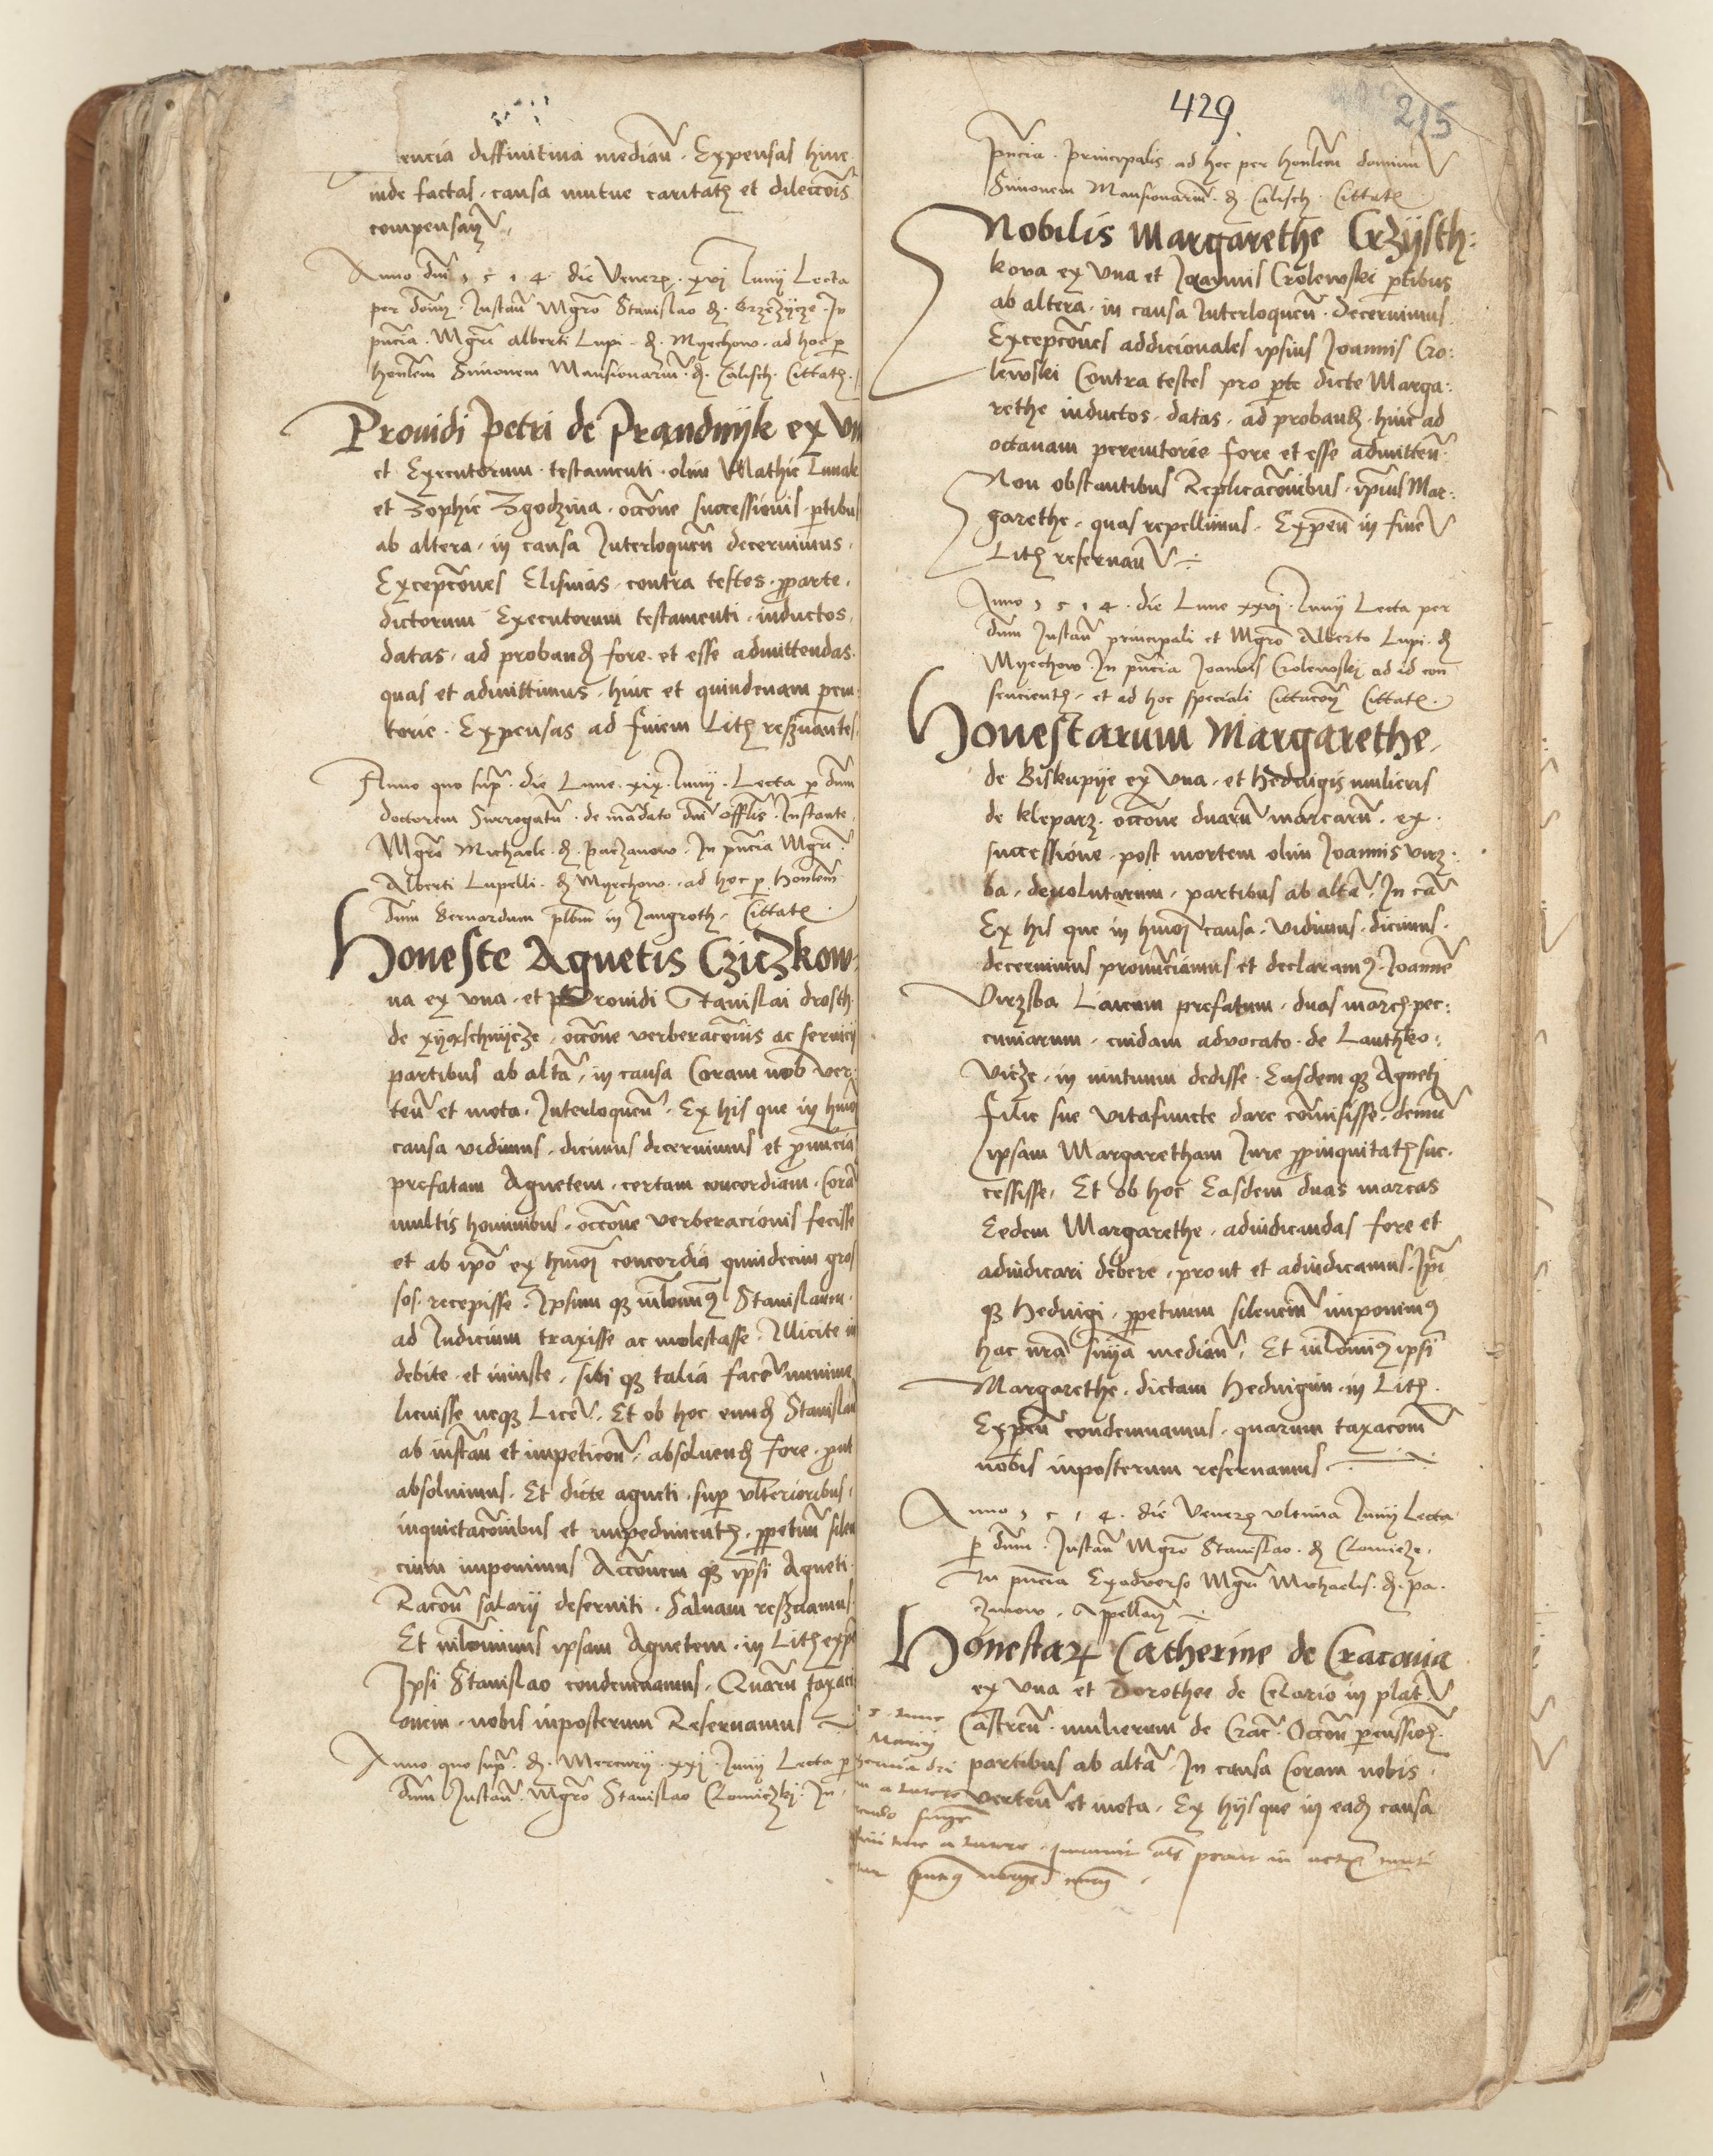 encia diffinitiva median̄. Expensas hinc
inde factas, causa mutue caritatꝭ et dileccōis
compensan̄
Anno dn̄i 1514 die Venerꝭ xvj Junij Lecta
per dom̄ Instan̄ Mgrō Stanislao d. Brzezÿcze In
pn̄cia Mgrī Alberti Lupi d. Myechow ad hoc p
honlēm Simonem Mansionariū d. Calisch Cittatꝭ
Providi Petri de Prandnÿk ex vn
et Executorum testamenti olim Mathie Lunak
et Zophie Zgodzina, occōne successionis ptibus
ab altera, in causa Interloquen̄ decernimus,
Excepcōnes Elisivas contra testes pparte
dictorum Executorum testamenti inductos,
datas, ad proband fore et esse admittendas
quas et admittimus, hinc et quindenam perem
torie. Expensas ad finem Litꝭ reservantes
Anno quo sup̄ die Lune xix Junij Lecta p dn̄m
doctorem Surrogatū de mādato dn̄i offlīs Instante
Mgrō Michaele d. Paczanow In pn̄cia Mgrī
Alberti Lupelli d. Myechow ad hoc p honlēm
dn̄m Bernardum plbm̄ in Jangroth Cittatꝭ
Honeste Agnetis Cziczkow:
na ex una et Providi Stanislai drosch
de xÿaschnÿcze, occōne verberacōnis ac servicij
partibus ab altā, in causa Coram nob ver:
ten̄ et mota. Interloquen̄. Ex his que in hmōi
causa vidimus, dicimus decernimus et pnuncia
prefatam Agnetem, certam concordiam, Corā
multis hominibus, occōne verberacionis fecisse
et ab ipō ex hmōi concordia quindecim gros
sos recepisse. Ipsum qꝫ nihlominꝰ Stanislaum
ad Judicium traxisse ac molestasse, Illicite in
debite et iniuste, sibi qꝫ talia facē minime
licuisse neqꝫ Licē. Et ob hoc eund Stanislau
ab instan̄ et impeticōn̄ absolvend fore, put
absolvimus. Et dicte agneti sup ulterioribus
inquietacōnibus et impedimentꝭ, ppetuū silen
cium imponimus Accōnem qꝫ ipsi Agneti
Racōn̄ salarij deserviti, Salvam reservamus
Et nihlominus ipsam Agnetem in Litꝭ expē
Ipsi Stanislao condemnamus. Quarū taxaci
onem nobis inposterum Reservamus
Anno quo sup̄ d. Mercurij xxj Junij Lecta p
dn̄m Instan̄ Mgrō Stanislao Clomiczkj In
429
215
pn̄cia principalis ad hoc per honlēm dominū
Simonem Mansionariū d. Calisch Cittatꝭ
Nobilis Margarethe Crzÿsth:
kova ex una et Joannis Crolewski ptibus
ab altera, in causa Interloquen̄ decernimus
Excepcōnes addicionales ipsius Joannis Cro:
lewski Contra testes pro pte dicte Marga:
rethe inductos, datas, ad proband, hinc ad
octavam peremtorie fore et esse admitten̄
Non obstantibus Replicacōnibus ipius Mar:
garethe, quas repellimus. Expen̄ in fine
Litꝭ reservan̄
Anno 1514 die Lune xxvj Junij Lecta per
dn̄m Instan̄ principali et Mgrō Alberto Lupi d
Myechow In pn̄cia Joannis Crolewski ad id con
sencientꝭ et ad hoc speciali Cittacōn̄ Cittatꝭ
Honestarum Margarethe
de Biskupÿe ex una, et Hedvigis mulieris
de kleparz occōne duarū marcarū, ex
successione post mortem olim Joannis virz
ba, devolutarum, partibus ab altā, In cā
Ex his que in hmōi causa vidimus, dicimus
decernimus pronuncīamus et declaramꝰ Joannē
Virzsba Laicum prefatum, duas marcꝭ pec:
cuniarum, cuidam advocato de Lanthko:
vicze, in mutuum dedisse. Easdem qꝫ Agneti
filie sue vitafuncte dare cōmisisse, demū
ipsam Margaretham Jure ppinquitatꝭ suc:
cessisse, Et ob hoc Easdem duas marcas
Eedem Margarethe, adiudicandas fore et
adiudicari debere, prout et adiudicamus. Ipi
qꝫ Hedvigi, ppetuum silenciū imponimꝰ
hac nrā snīja median̄, Et nihlominꝰ ipsi
Margarethe, dictam Hedvigim in Litꝭ
Expen̄ condemnamus, quarum taxacōm
nobis inposterum reservamus
Anno 1514 die Venerꝭ ultima Junij Lecta
p dn̄m Instan̄ Mgrō Stanislao d Clomicze,
In pn̄cia Exadverso Mgrī Michaelis d. pa:
czanow, Appellan̄
Honestaꝝ Catherine de Cracovia
ex una et Dorothee de Celario in plat
Castren̄ mulierum de Crac̄ Occōn̄ percussiōꝭ
partibus ab altā In causa Coram nobis
verten̄ et mota, Ex hijs que in ead causa